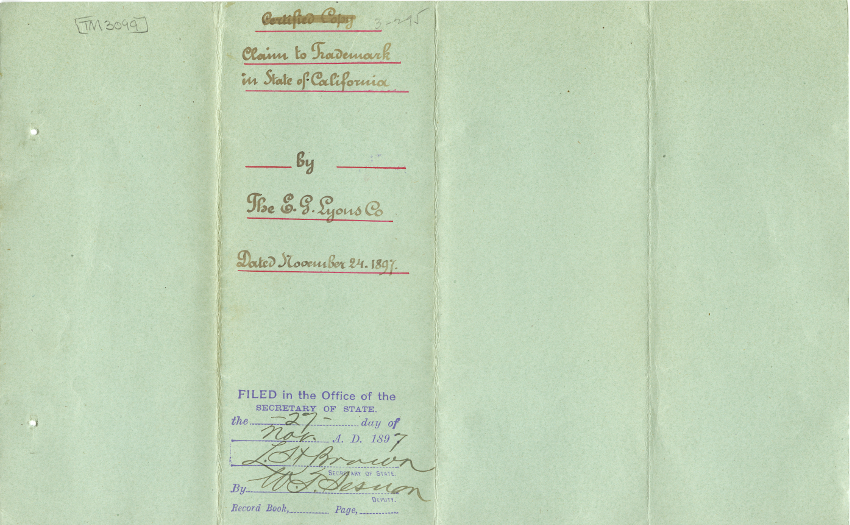 TM 3099
Certified Copy
Claim to Trademark
in State of California
by
The E. G. Lyons Co
Dated November 24. 1897.
FILED in the Office of the
SECRETARY OF STATE.
the -27- day of
Nov. A. D. 1897
L. H. Brown
SECRETARY OF STATE.
By
DEPUTY.
Record Book, Page,